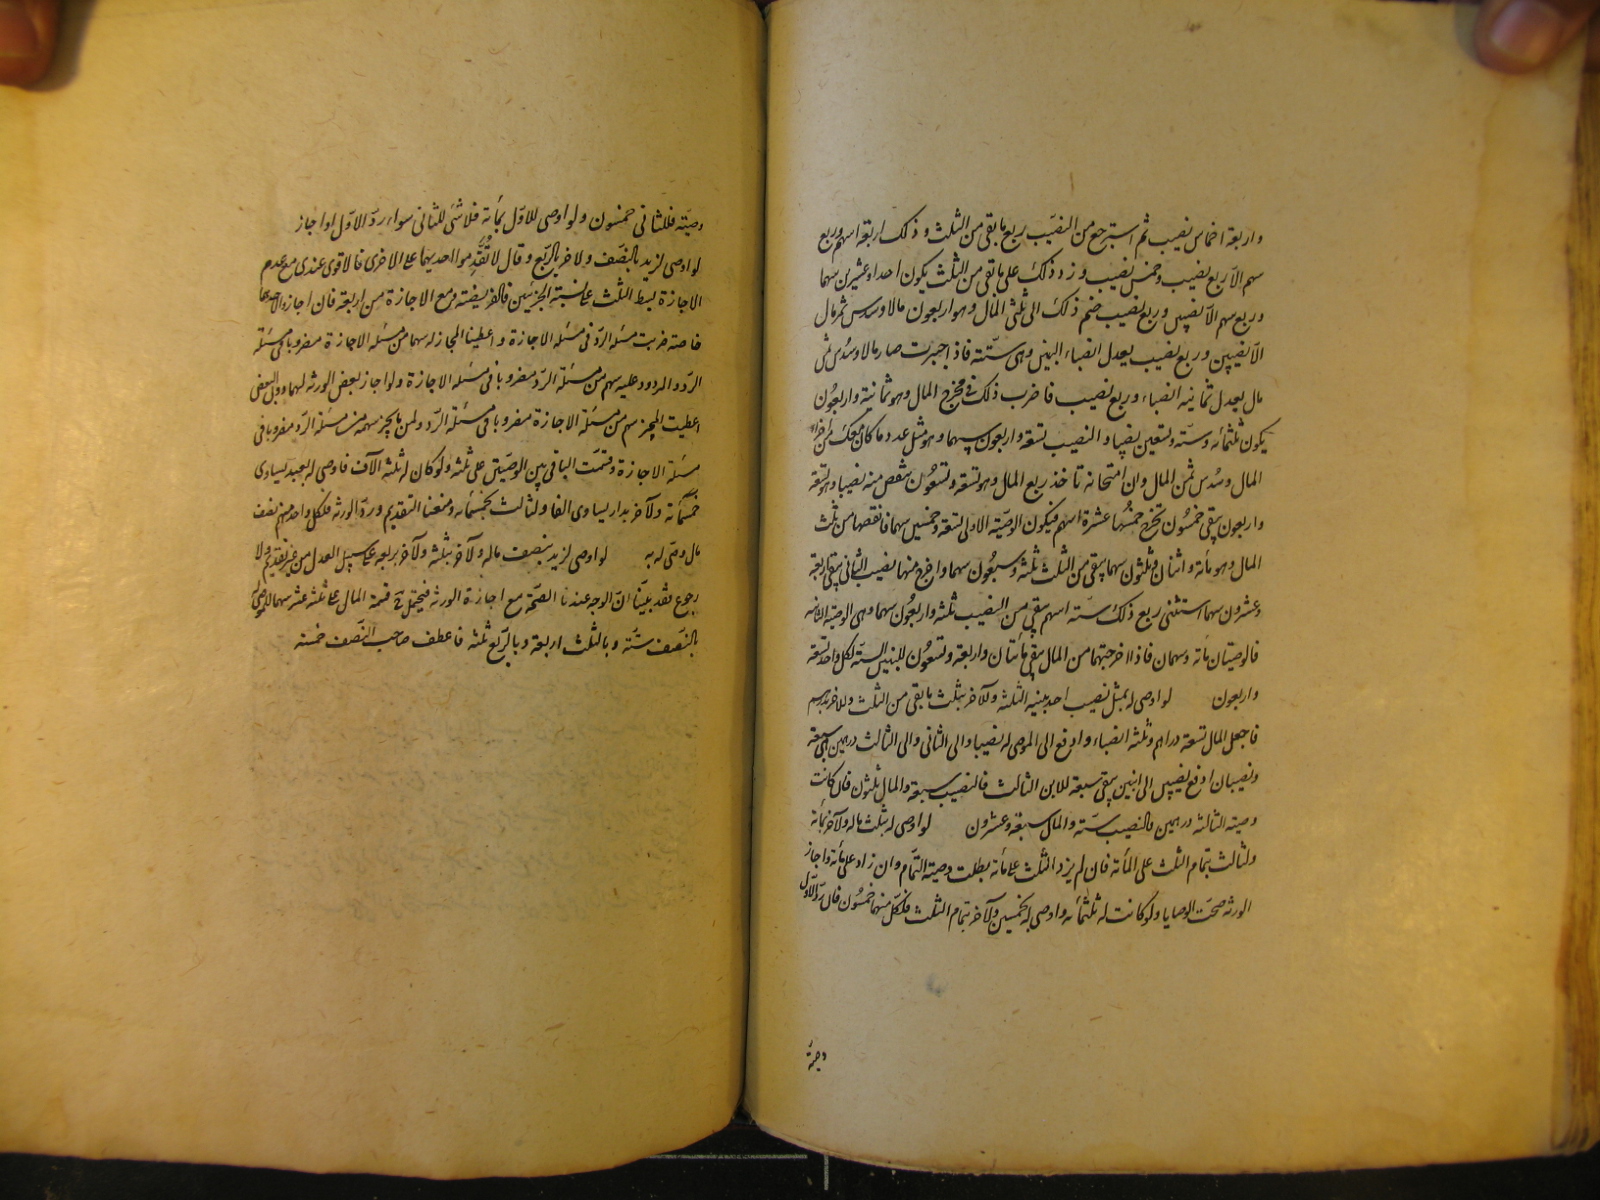 واربعة اخماس نصيب ثم استرجع من النصيب ربع ما بقى من الثلث وذلك اربعة اسهم وربع
سهم الا ربع نصيب وخمس نصيب وزد ذلك على ما بقى من الثلث يكون احدا وعشرين سهما
وربع سهم الا نصيبين وربع نصيب ضم ذلك الى ثلثى المال وهو اربعون مالا وسدس ثمر مال
الا نصيبين وربع نصيب يعدل انصباء البنين وهى ستته فاذا جبرت صار مالا وسدس ثمن
مال يعدل ثمانية انصباء وربع نصيب فاضرب ذلك فى مخرج المال وهو ثمانية واربعون
يكون ثلثمائه وستّه وتسعين نصيبا والنصيب تسعة واربعون سهما وهو مثل عدد ما كان معك من اجزاء
المال وسدس ثمن المال وان امتحانه تاخذ ربع المال وهو تسعة وتسعون تنقص منه نصيبا وهو تسعة
واربعون يبقى خمسون تخرج خمسها عشرة اسهم فيكون الوصية الاولى تسعة وخمسين سهما فانقصها من ثلث
المال وهو مائة واثنان وثلثون سهما يبقى من الثلث ثلثه وسبعون سهما واخرج منها نصيب الثانى يبقى اربعة
وعشرون سهما استثنى ربع ذلك ستة اسهم يبقى من النصيب ثلثة واربعون سهما وهى الوصية الثانيه
فالوصيتان مائه وسهمان فاذا اخرجتهما من المال يبقى مائتان واربعة وتسعون للبنين الستة لكل واحد تسعة
واربعون لو اوصى له بمثل نصيب احد بنيه الثلثة ولآخر بثلث ما بقى من الثلث وللاخر بدرهم
فاجعل المال تسعة دراهم وثلثه انصباء وادفع الى الموصى له نصيبا والى الثانى والى الثالث درهمين يبقى سبعة
ونصيبان ادفع نصيبين الى ابنين يبقى سبعة للابن الثالث فالنصيب سبعة والمال ثلثون فان كانت
وصيته الثالثه درهمين فالنصيب ستّه والمال سبعة وعشرون لو اوصى له بثلث ماله ولآخر بمائة
ولثالث بتمام الثلث على المائة فان لم يزد الثلث على مائة بطلت وصية التمام وان زاد على مائة واجاز
الورثه صحت الوصايا ولو كانت له ثلثمائه واوصى له بخمسين ولآخر بتمام الثلث فلكل منهما خمسون فان ردّ الاوّل
وصيّة
وصيّته فللثانى خمسون ولو اوصى للاوّل بمائة فلا شئ للثانى سواء ردّ الاوّل او اجاز
لو اوصى لزيد بالنصف ولآخر بالربع وقال لا تقدموا احديهما على الاخرى فالاقوى عندى مع عدم
الاجازة بسط الثلث على نسبة الجزئين فالفريضة ومع الاجازة من اربعة فان اجازوا لاحدهما
خاصة ضربت مسئلة الردّ فى مسئلة الاجازة واعطينا المجاز له سهما من مسئلة الاجازة مضروبا فى مسئلة
الردّ والمردود عليه سهم من مسئلة الردّ مضروبا فى مسئلة الاجازة ولو اجاز بعض الورثه لهما دون البعض
اعطيت المجيز سهم من مسئلة الاجازة مضروبا فى مسئلة الردّ ولمن لم يجز سهمه من مسئلة الردّ مضروبا فى
مسئلة الاجازة وقسّمت الباقى بين الوصيتين على ثلثه ولو كان له ثلثة الآف فاوصى له بعبد يساوى
خمسمائة ولآخر بدار يساوى الفا ولثالث بخمسمائه ومنعنا التقديم وردّ الورثه فلكل واحد منهم نصف
مال وصّى له به لو اوصى لزيد بنصف ماله ولآخر بثلثه ولآخر بربعه على سبيل العدل من غير تقديم ولا
رجوع فقد بيّنا انّ الوجه عندنا الصحة مع اجازة الورثه فيحتمل قسمة المال على ثلثة عشر سهما للموصى له
بالنصف ستّة وبالثلث اربعة وبالربع ثلثه فاعطف صاحب النصف خمسه